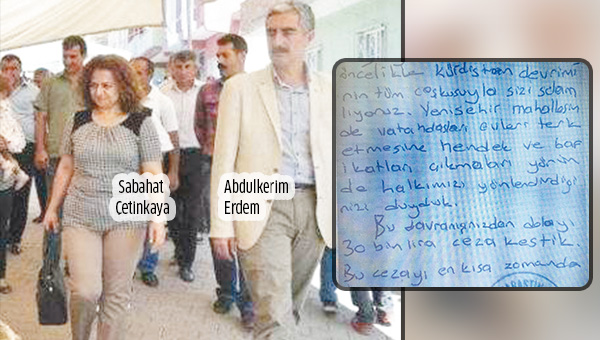 Sabahat
Cetinkaya
Abdulkerim
Erdem
öncelikle kürdistan devrimi
nin tüm coşkusuyla sizi selam
lıyoruz. Yenişehir mahallesin
de vatandaşları evleri terk
etmesine hendek ve
çıkmaları yönün
de halkımızı yönlendirdiği
nizi duyduk.
Bu davranışınızdan dolayı
30 bin lira ceza kestik.
Bu cezayı en kısa zamanda